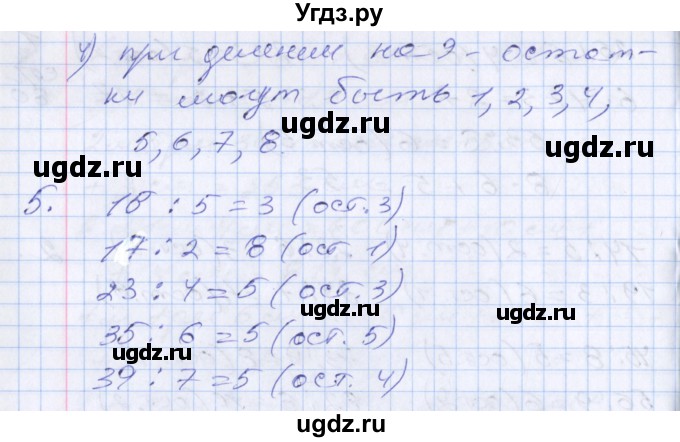 Угдз.ру
4) при делении на 9 - остат-
ки могут быть 1, 2, 3, 4,
ugdz.ru
5, 6, 7, 8.
ugdz.ru
ugdz.ru
5. 18 : 5 = 3 (ост. 3)
ugdz.ru
17 : 2 = 8 (ост. 1)
23 : 4 = 5 (ост. 3)
ugdz.ru
35 : 6 = 5 (ост. 5)
ugdz.ru
ugdz.ru
39 : 7 = 5 (ост. 4)
ugdz.ru